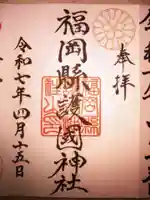 奉拝
福岡縣護國神社
令和七年四月十五日